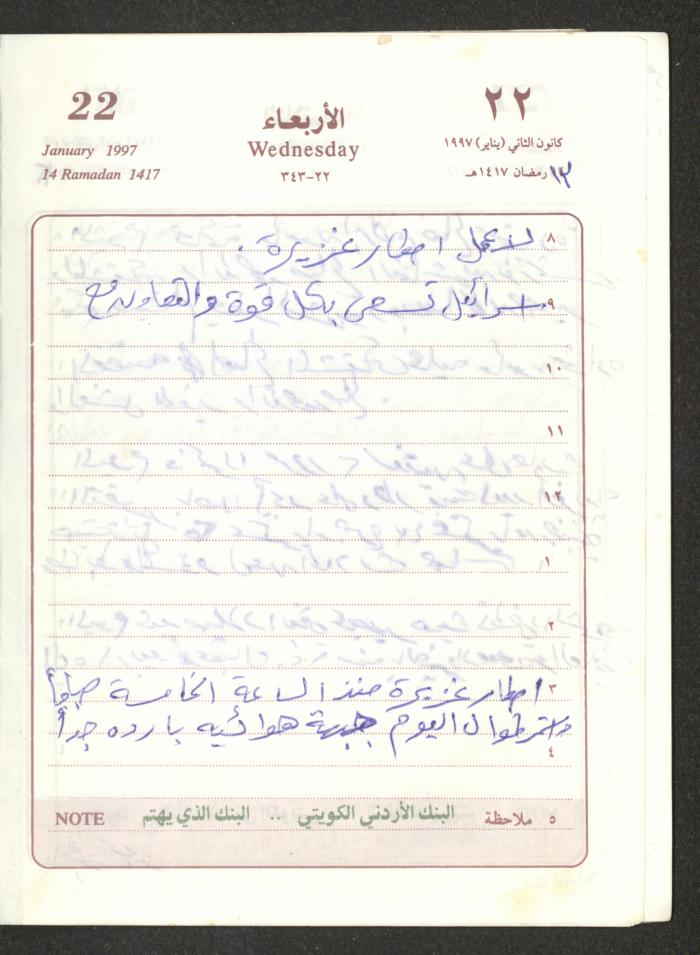 22
٢٢
الأربعاء
January 1997
Wednesday
كانون الثاني (يناير) ١٩٩٧
14 Ramadan 1417
٣٤٣-٢٢
١٣ رمضان ١٤١٧هـ
٨
لا عمل امطار غزيرة .
٩
اسرائيل تسعى بكل قوة والتعاون مع
١٠
١١
١٢
١
٢
٣
امطار غزيرة منذ الساعة الخامسة صباحاً
طوال اليوم جبهة هوائيه بارده جداً
٤
NOTE
البنك الأردني الكويتي .. البنك الذي يهتم
٥ ملاحظة